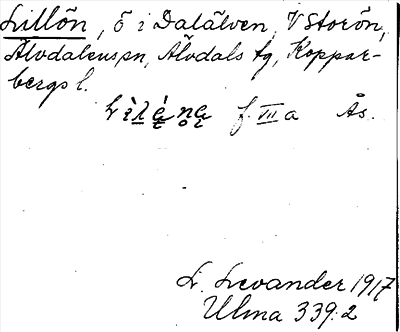 Lillön, ö i Dalälven, V Storön,
Älvdalens sn, Älvdals tg, Koppar-
bergs l.
f. VII a Ås.
L. Levander 1917
Ulma 339:2